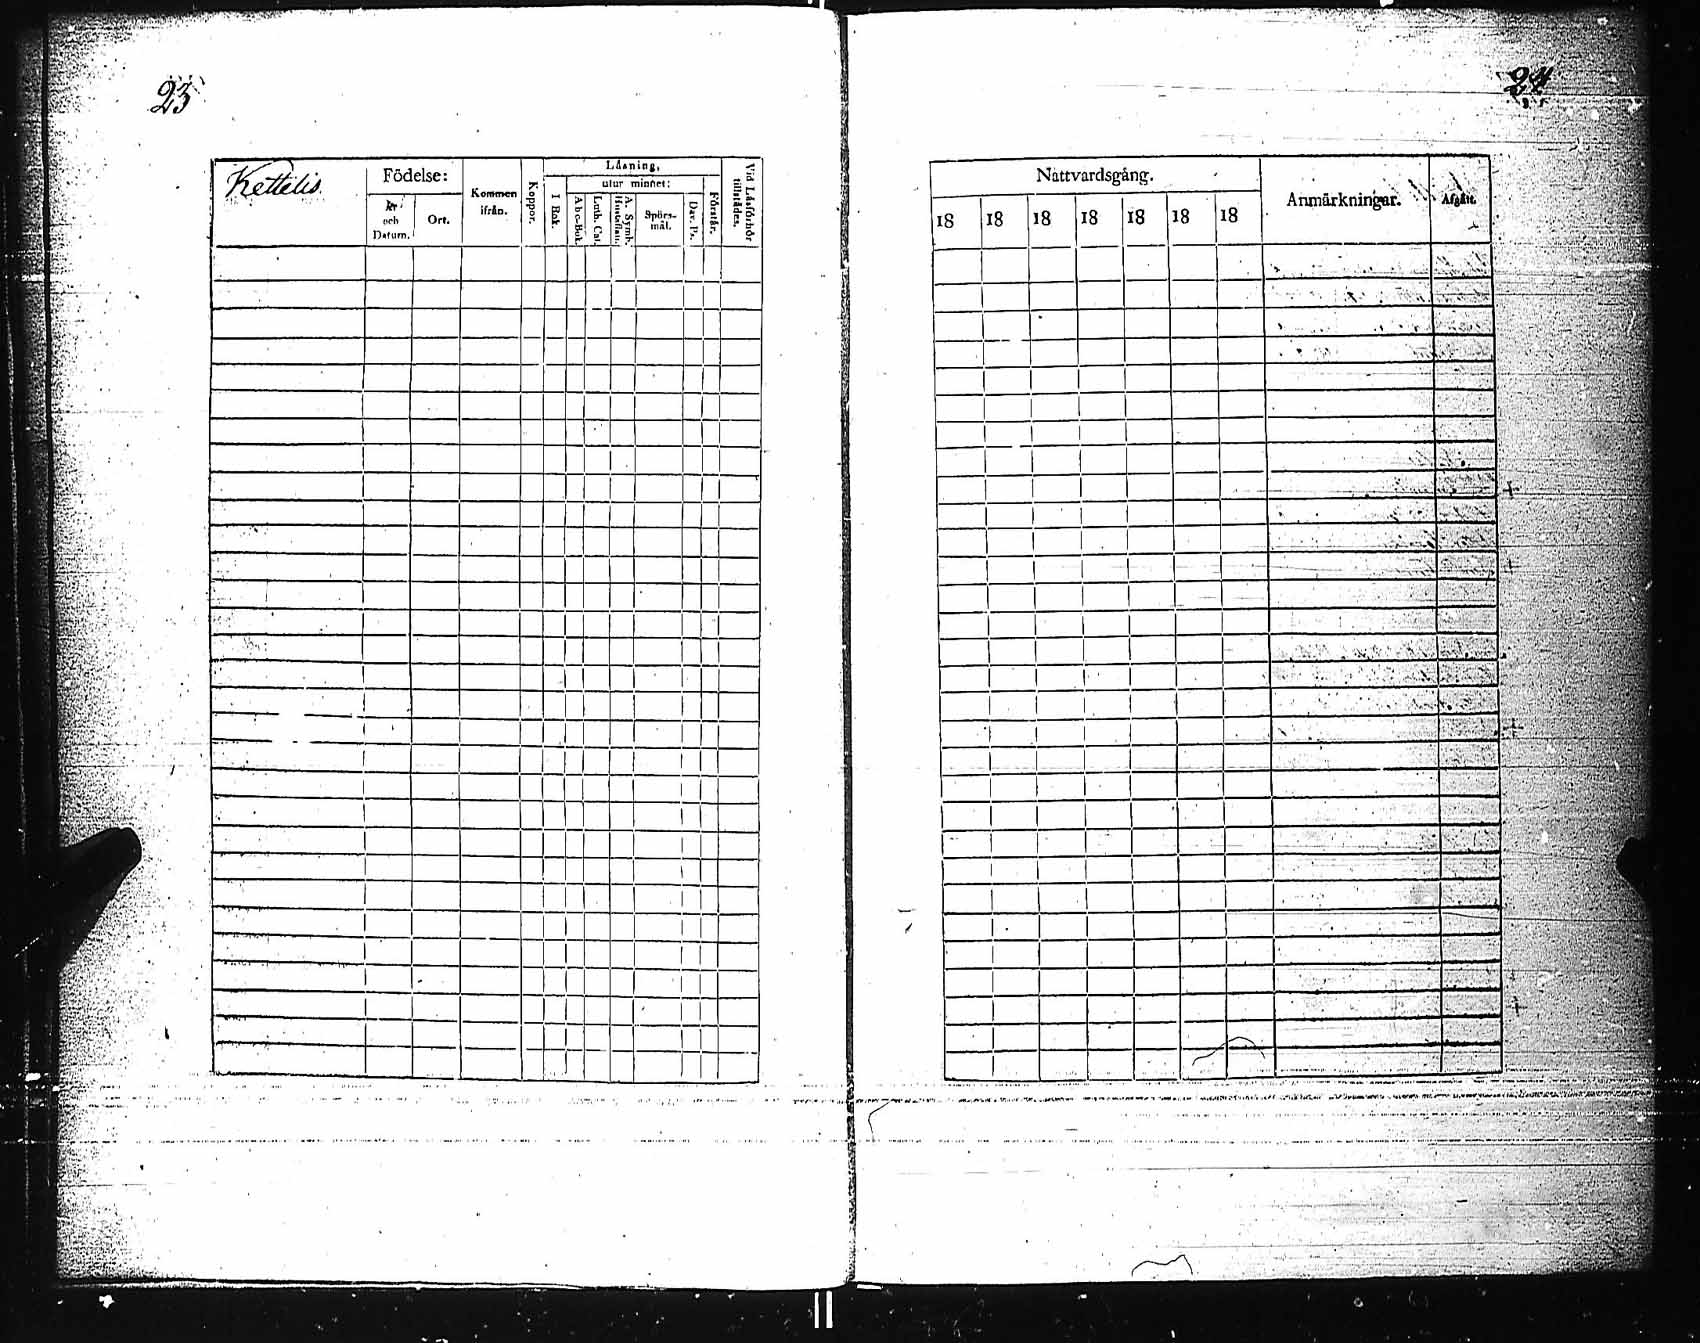 23
24
Kettelis
Födelse:
År
och
Datum.
Ort.
Kommen
ifrån.
Koppor.
Läsning,
utur minnet:
I Bok.
Abc-Bok.
Luth. Cat.
A. Symb.
Hustaflan.
Spörs-
mål.
Dav. Ps.
Förstår.
Vid Läsförhör
tillstädes.
Nattvardsgång.
18 18 18 18 18 18 18
Anmärkningar.
Afgått.